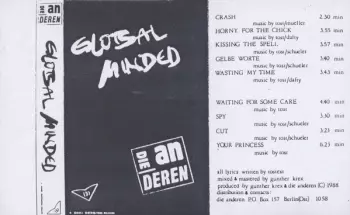 DIE an DEREN
GLOBAL MINDED
GLOBAL
MINDED
DIE an DEREN
CRASH 2.30 min
music by ross/mueller
HORNY FOR THE CHICK 3.55 min
music by ross/dafty
KISSING THE SPELL 3.57 min
music by ross/schueler
GELBE WORTE 3.40 min
music by ross/schueler
WASTING MY TIME 3.43 min
music by ross/dafty
WAITING FOR SOME CARE 4.40 min
music by ross
SPY 3.30 min
music by ross/schueler
CUT 3.21 min
music by ross/schueler
YOUR PRINCESS 6.25 min
music by ross
all lyrics written by
mixed & mastered by gunther krex
produced by gunther krex & die anderen (C) 1988
distribution & contact:
die anderen P.O. Box 157 Berlin(Ddr) 1058